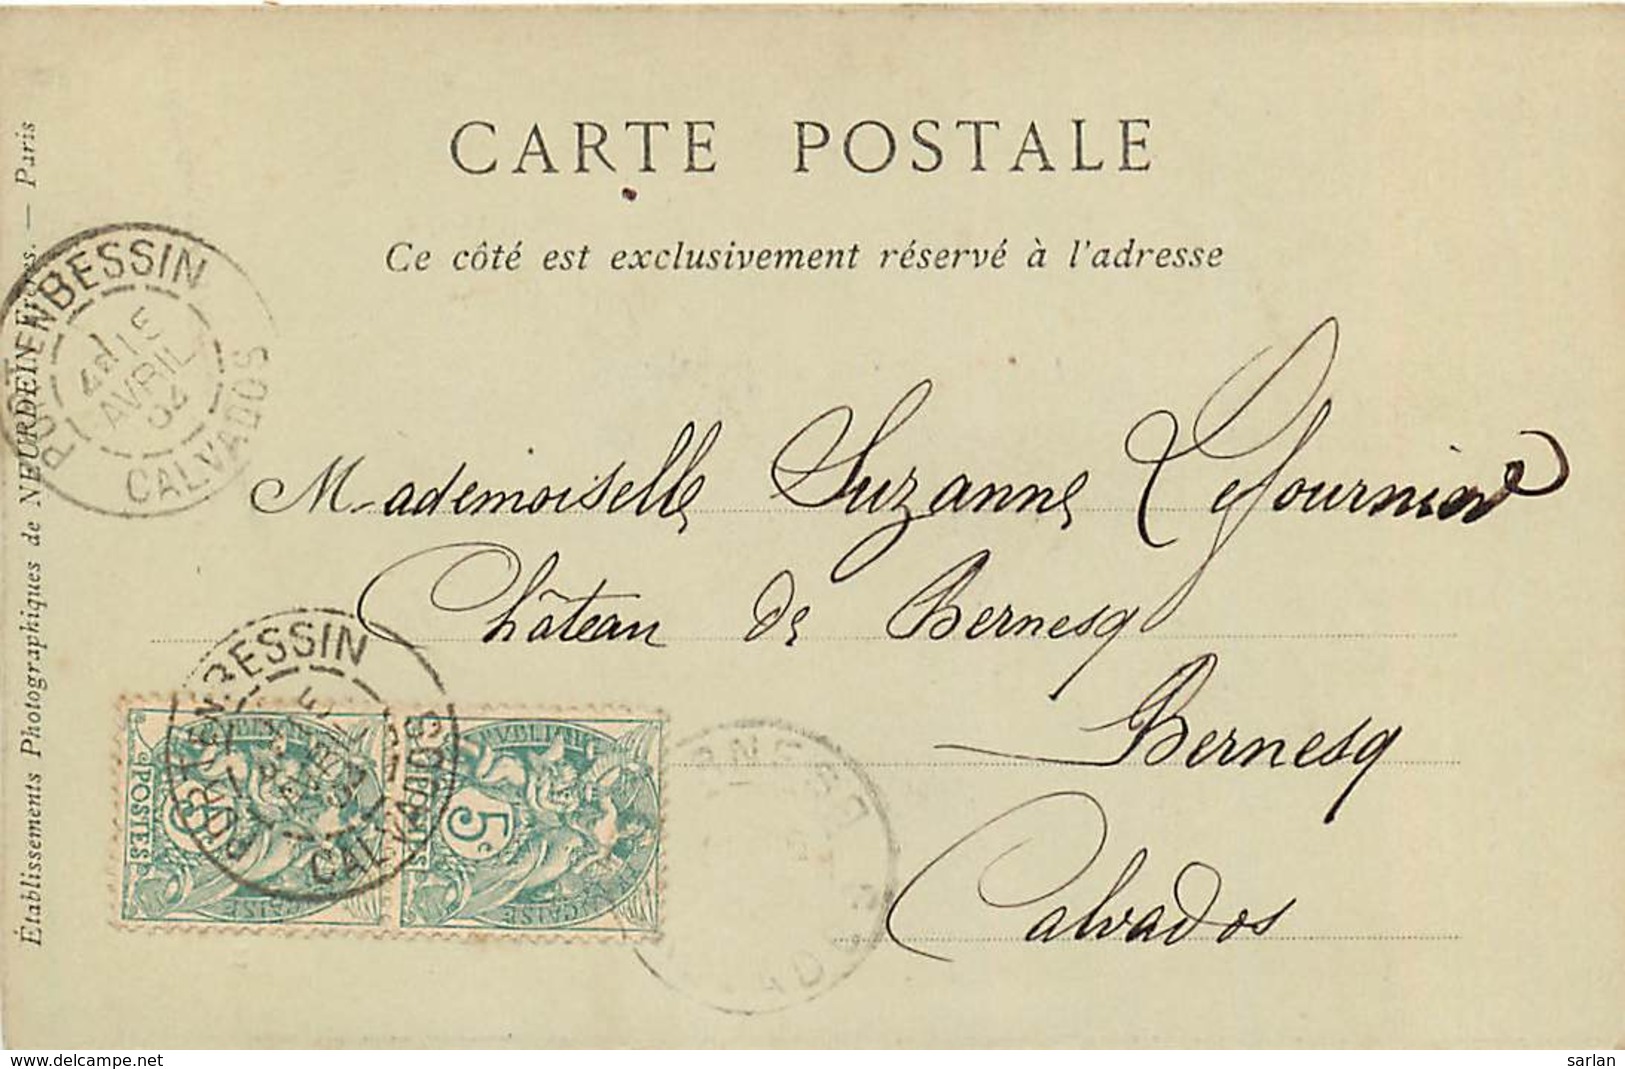 CARTE POSTALE
Ce côté est exclusivement réservé à l'adresse
Établissements Photographiques de NEURDEIN Frères. — Paris
PORT-EN-BESSIN
15
AVRIL
04
CALVADOS
Mademoiselle Suzanne Lefournier
Château de Bernesq
Bernesq
Calvados
PORT-EN-BESSIN
CALVADOS
POSTES
5c
RÉPUBLIQUE
FRANÇAISE
delcampe.net
sarlan